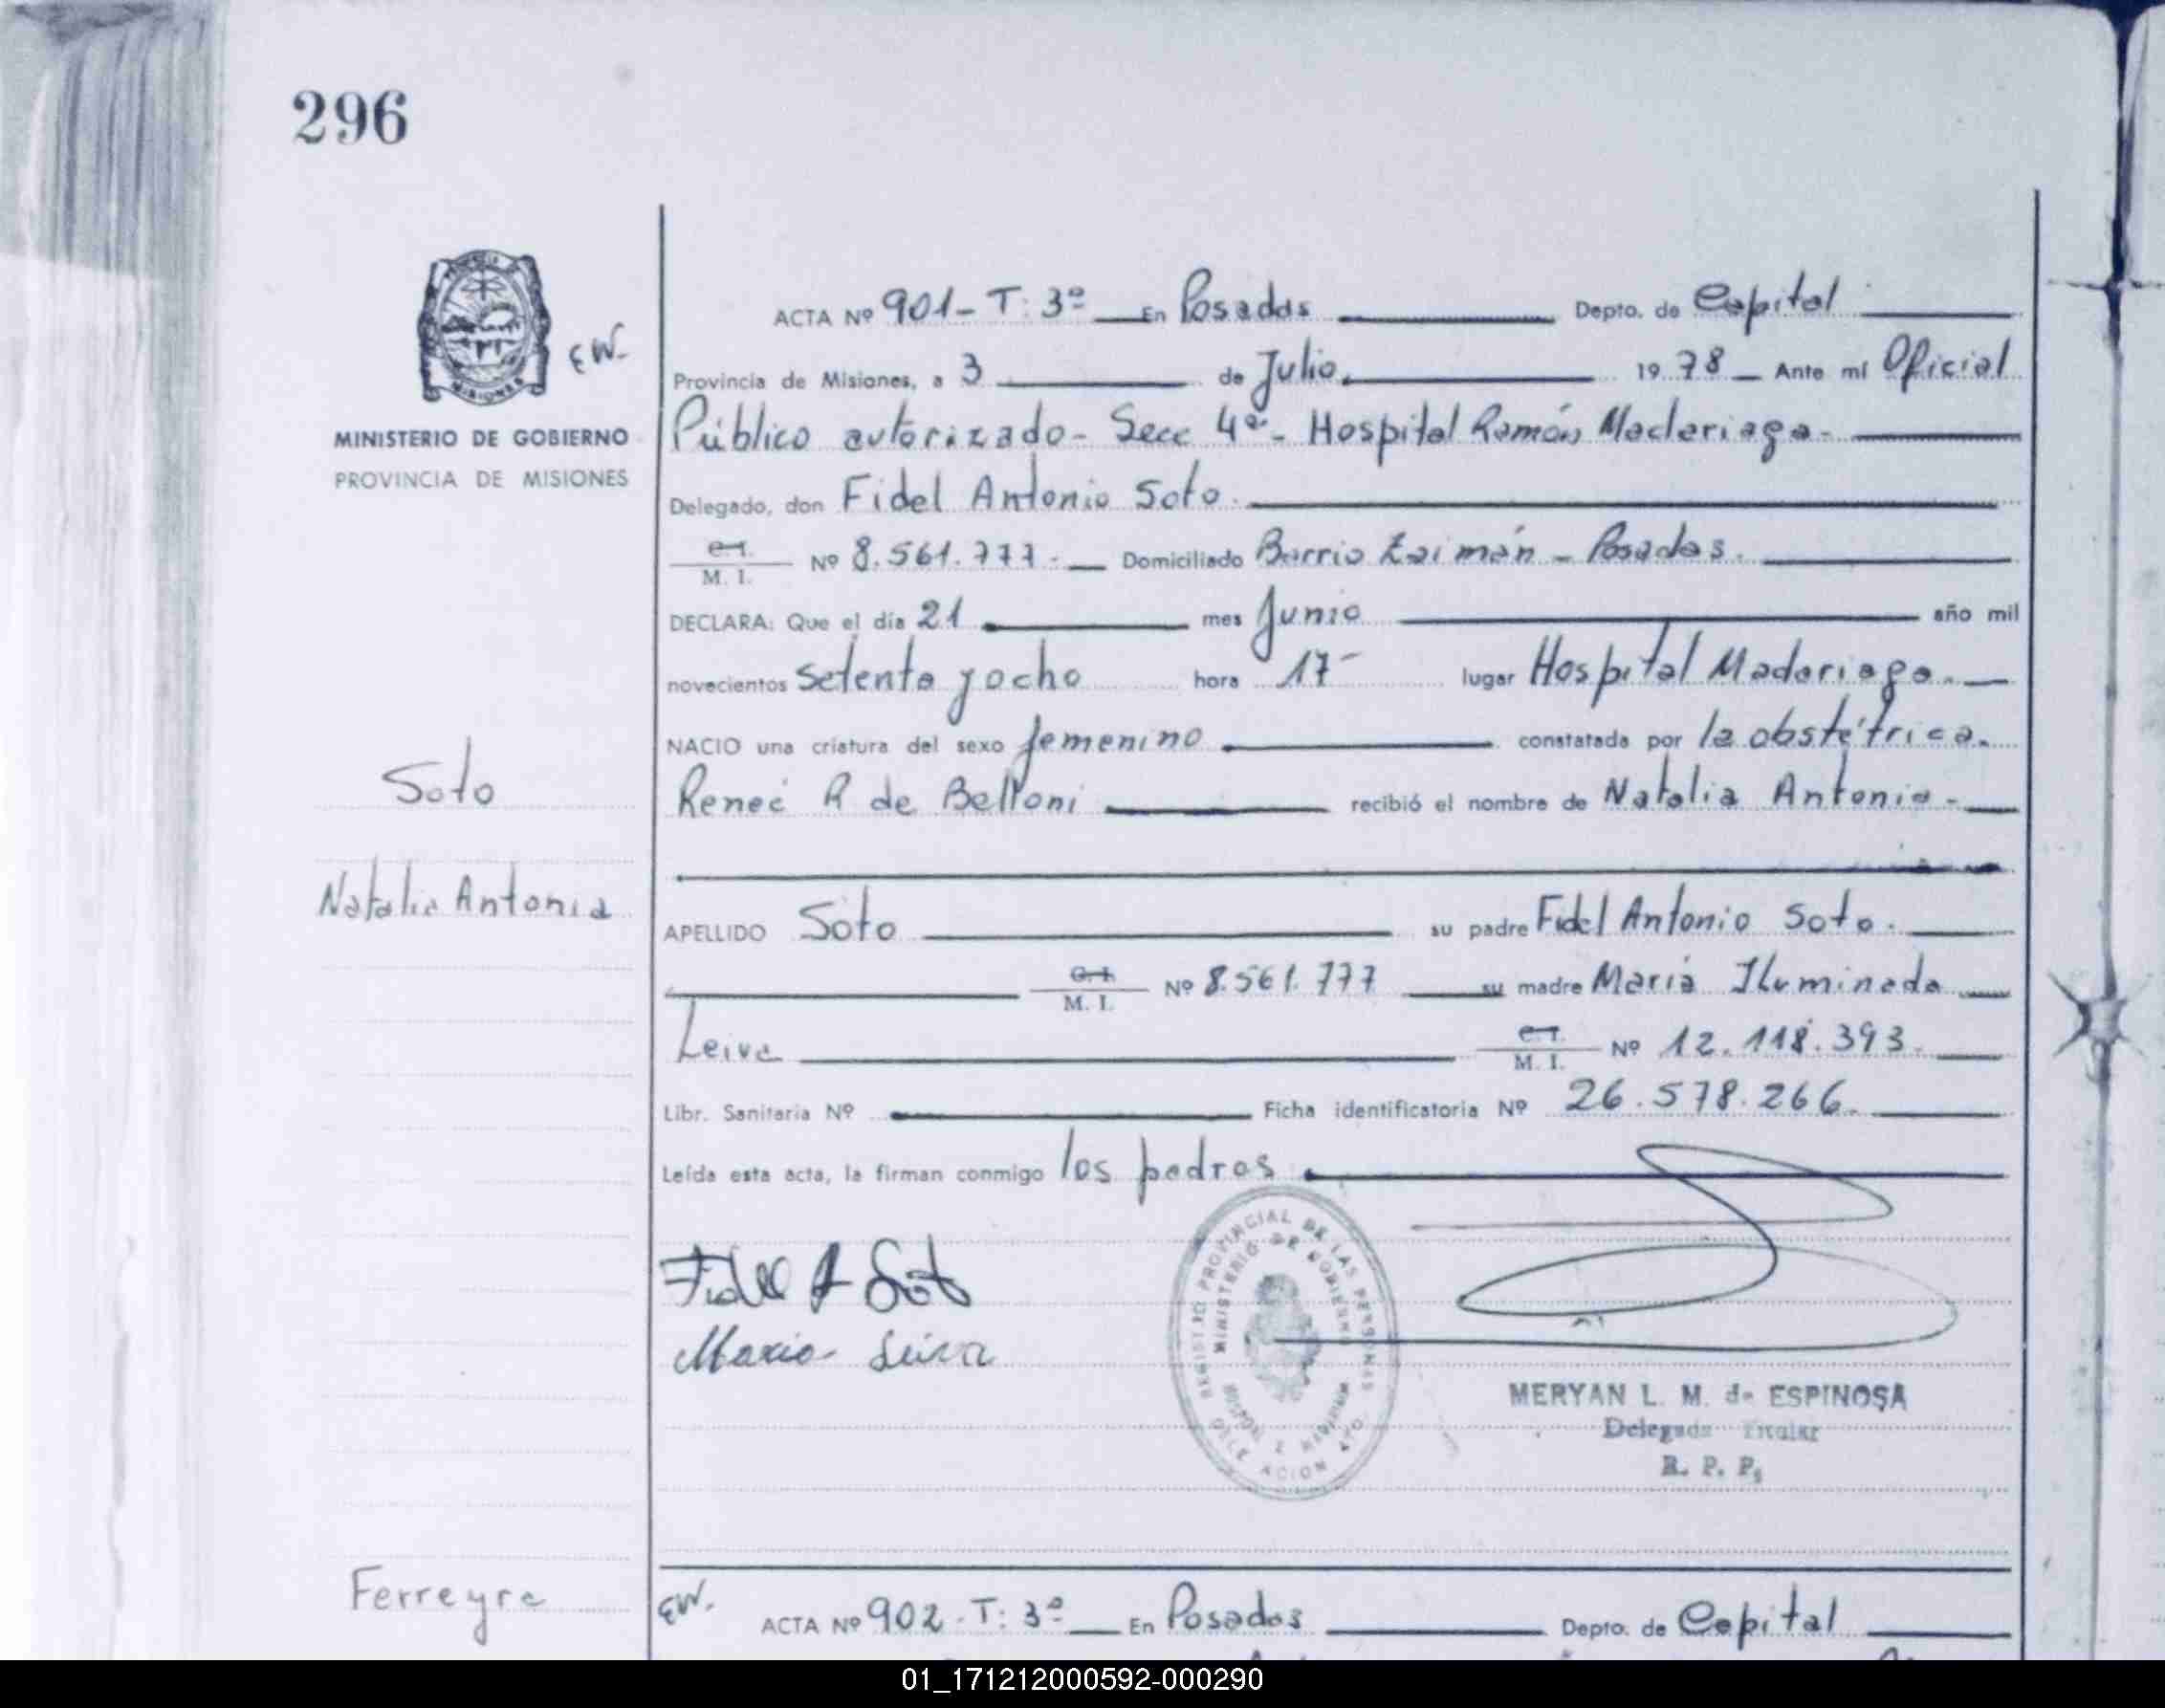 296
EW-
MINISTERIO DE GOBIERNO
PROVINCIA DE MISIONES
ACTA Nº 901- T: 3º En Posadas Depto. de Capital
Provincia de Misiones, a 3 de Julio. 1978 Ante mí Oficial
Público autorizado- Secc 4ª- Hospital Ramón Madariaga-
Delegado, don Fidel Antonio Soto.
C.I. M. I. Nº 8.561.777.- Domiciliado Barrio Zaimán - Posadas.
DECLARA: Que el día 21 mes Junio año mil
novecientos setenta y ocho hora 17- lugar Hospital Madariaga.
NACIO una criatura del sexo femenino constatada por la obstétrica.
Reneé R de Belloni recibió el nombre de Natalia Antonia-
Soto
Natalia Antonia
APELLIDO Soto su padre Fidel Antonio Soto.
C.I. M. I. Nº 8.561.777 su madre María Iluminada
Leiva C.I. M. I. Nº 12.118.393.
Libr. Sanitaria Nº Ficha identificatoria Nº 26.578.266.
Leída esta acta, la firman conmigo los padres.
Fidel A Soto
Maria Leiva
REGISTRO PROVINCIAL DE LAS PERSONAS
MINISTERIO DE GOBIERNO
DELEGACION
MERYAN L. M. de ESPINOSA
Delegada Titular
R. P. P.
Ferreyra
EW. ACTA Nº 902- T: 3º En Posadas Depto. de Capital
01_171212000592-000290